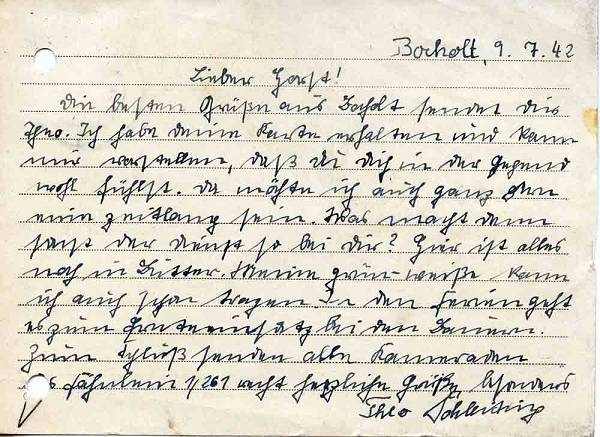 Bocholt, 9. 7. 42
Lieber Horst!
Die besten Grüße aus Bocholt sendet dir
Theo. Ich habe deine Karte erhalten und kann
mir vorstellen, daß du dich in der Gegend
wohl fühlst. Da möchte ich auch ganz gern
eine zeitlang sein. Was macht denn
sonst der Dienst so bei dir? Hier ist alles
noch in Butter. Meine grün-weiße kann
ich auch schon tragen. In den Ferien geht
es zum Ernteeinsatz bei den Bauern.
Zum Schluß senden alle Kameraden
des Fähnlein 1/261 recht herzliche Grüße, besonders
Theo